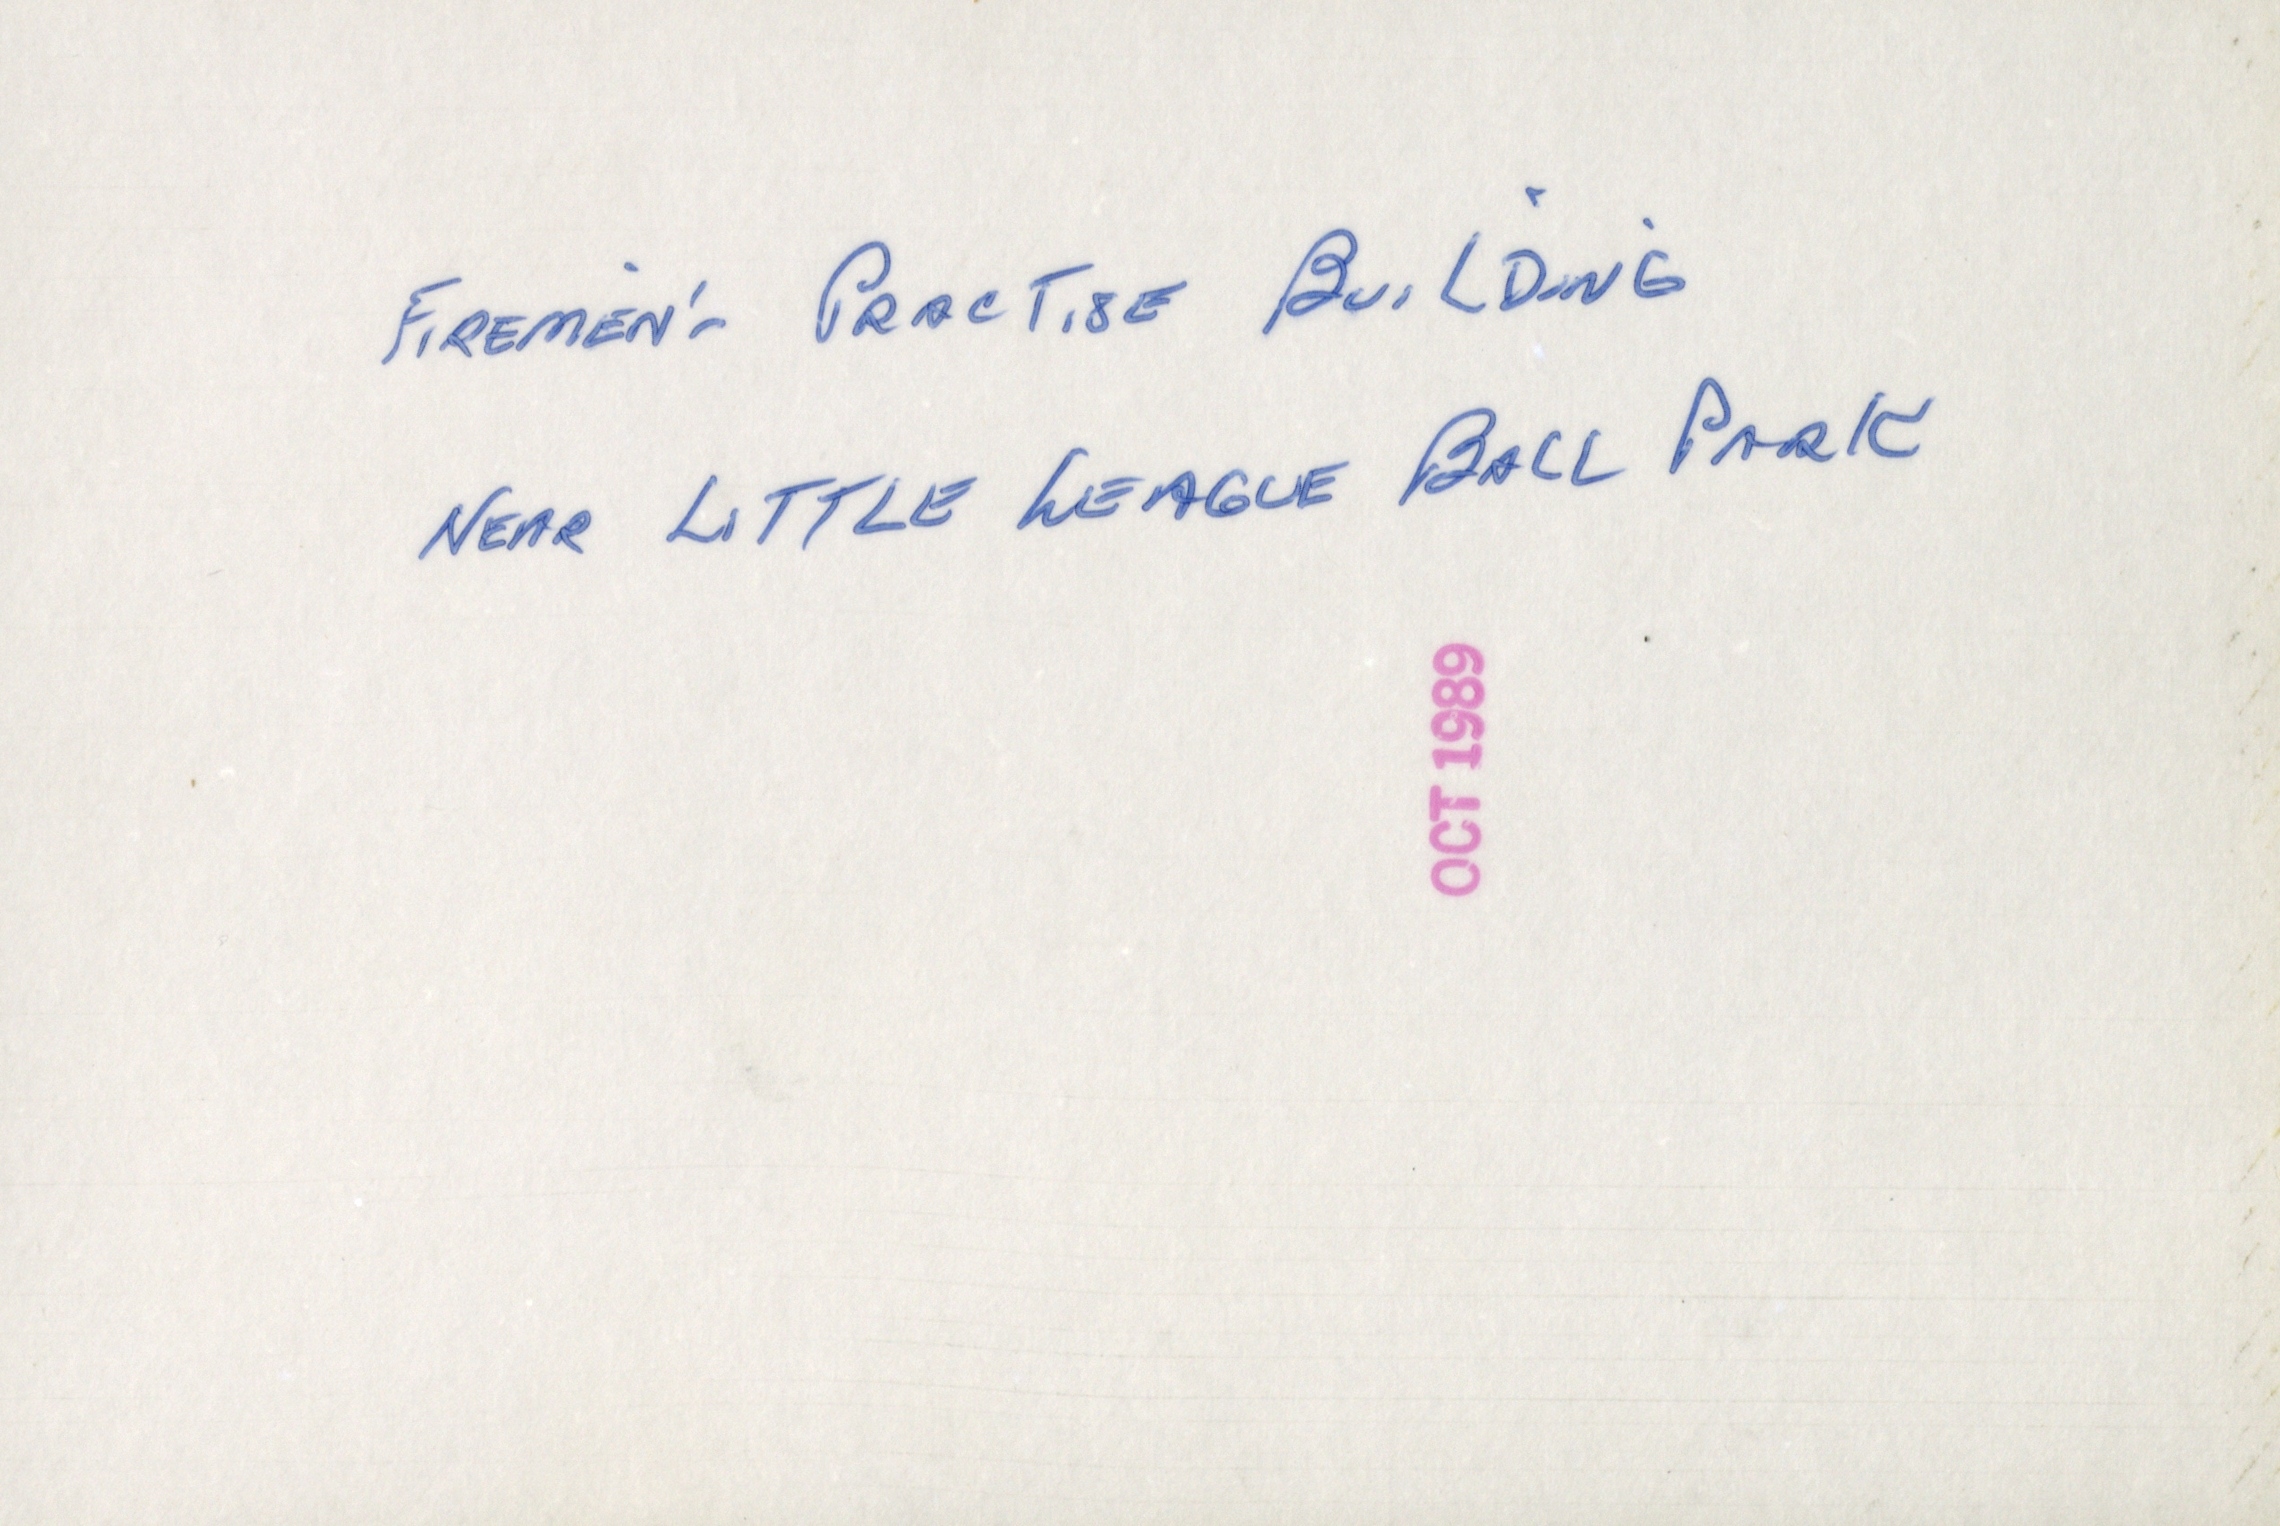 FIREMEN'S PRACTISE BUILDING
NEAR LITTLE LEAGUE BALL PARK
OCT 1989